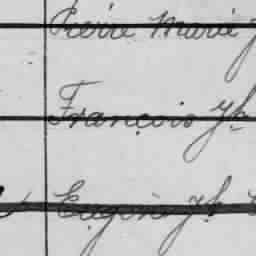 Pierre Marie J
François Jh
Eugène Jh